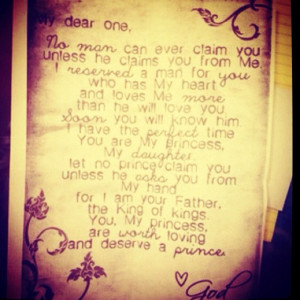 My dear one,
No man can ever claim you
unless he claims you from Me.
I reserved a man for you
who has My heart
and loves Me more
than he will love you.
Soon you will know him.
I have the perfect time
You are My Princess,
My daughter
let no prince claim you
unless he asks you from
My hand
for I am your Father,
the King of kings.
You, My princess,
are worth loving
and deserve a prince.
God